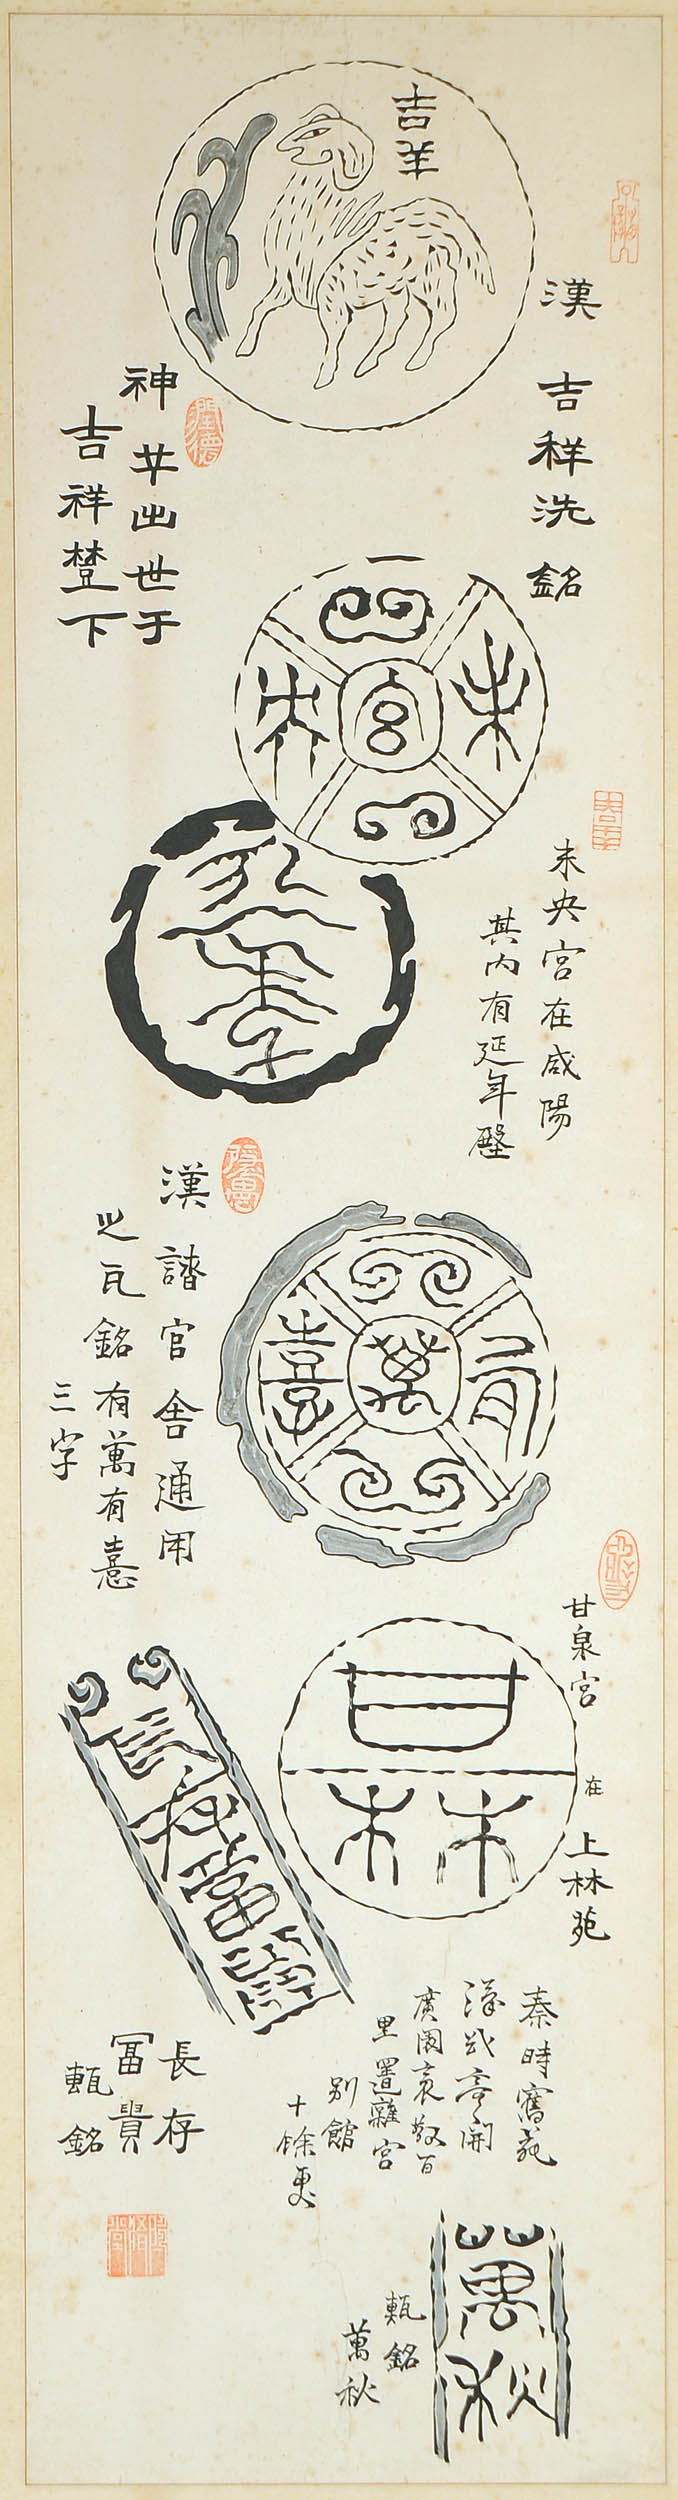 吉羊
漢 吉祥洗銘
神
出世于
吉祥
下
未央宮
未央宮在咸陽
其內有延年殿
延年
漢諸官舍通用
之瓦銘有萬有憙
三字
萬有憙
甘泉宮 在 上林苑
甘林
長存富貴
秦時舊苑
漢武帝開
廣周袤數百
里置離宮
別館
十餘更
長存
富貴
甎銘
萬秋
甎銘
萬秋